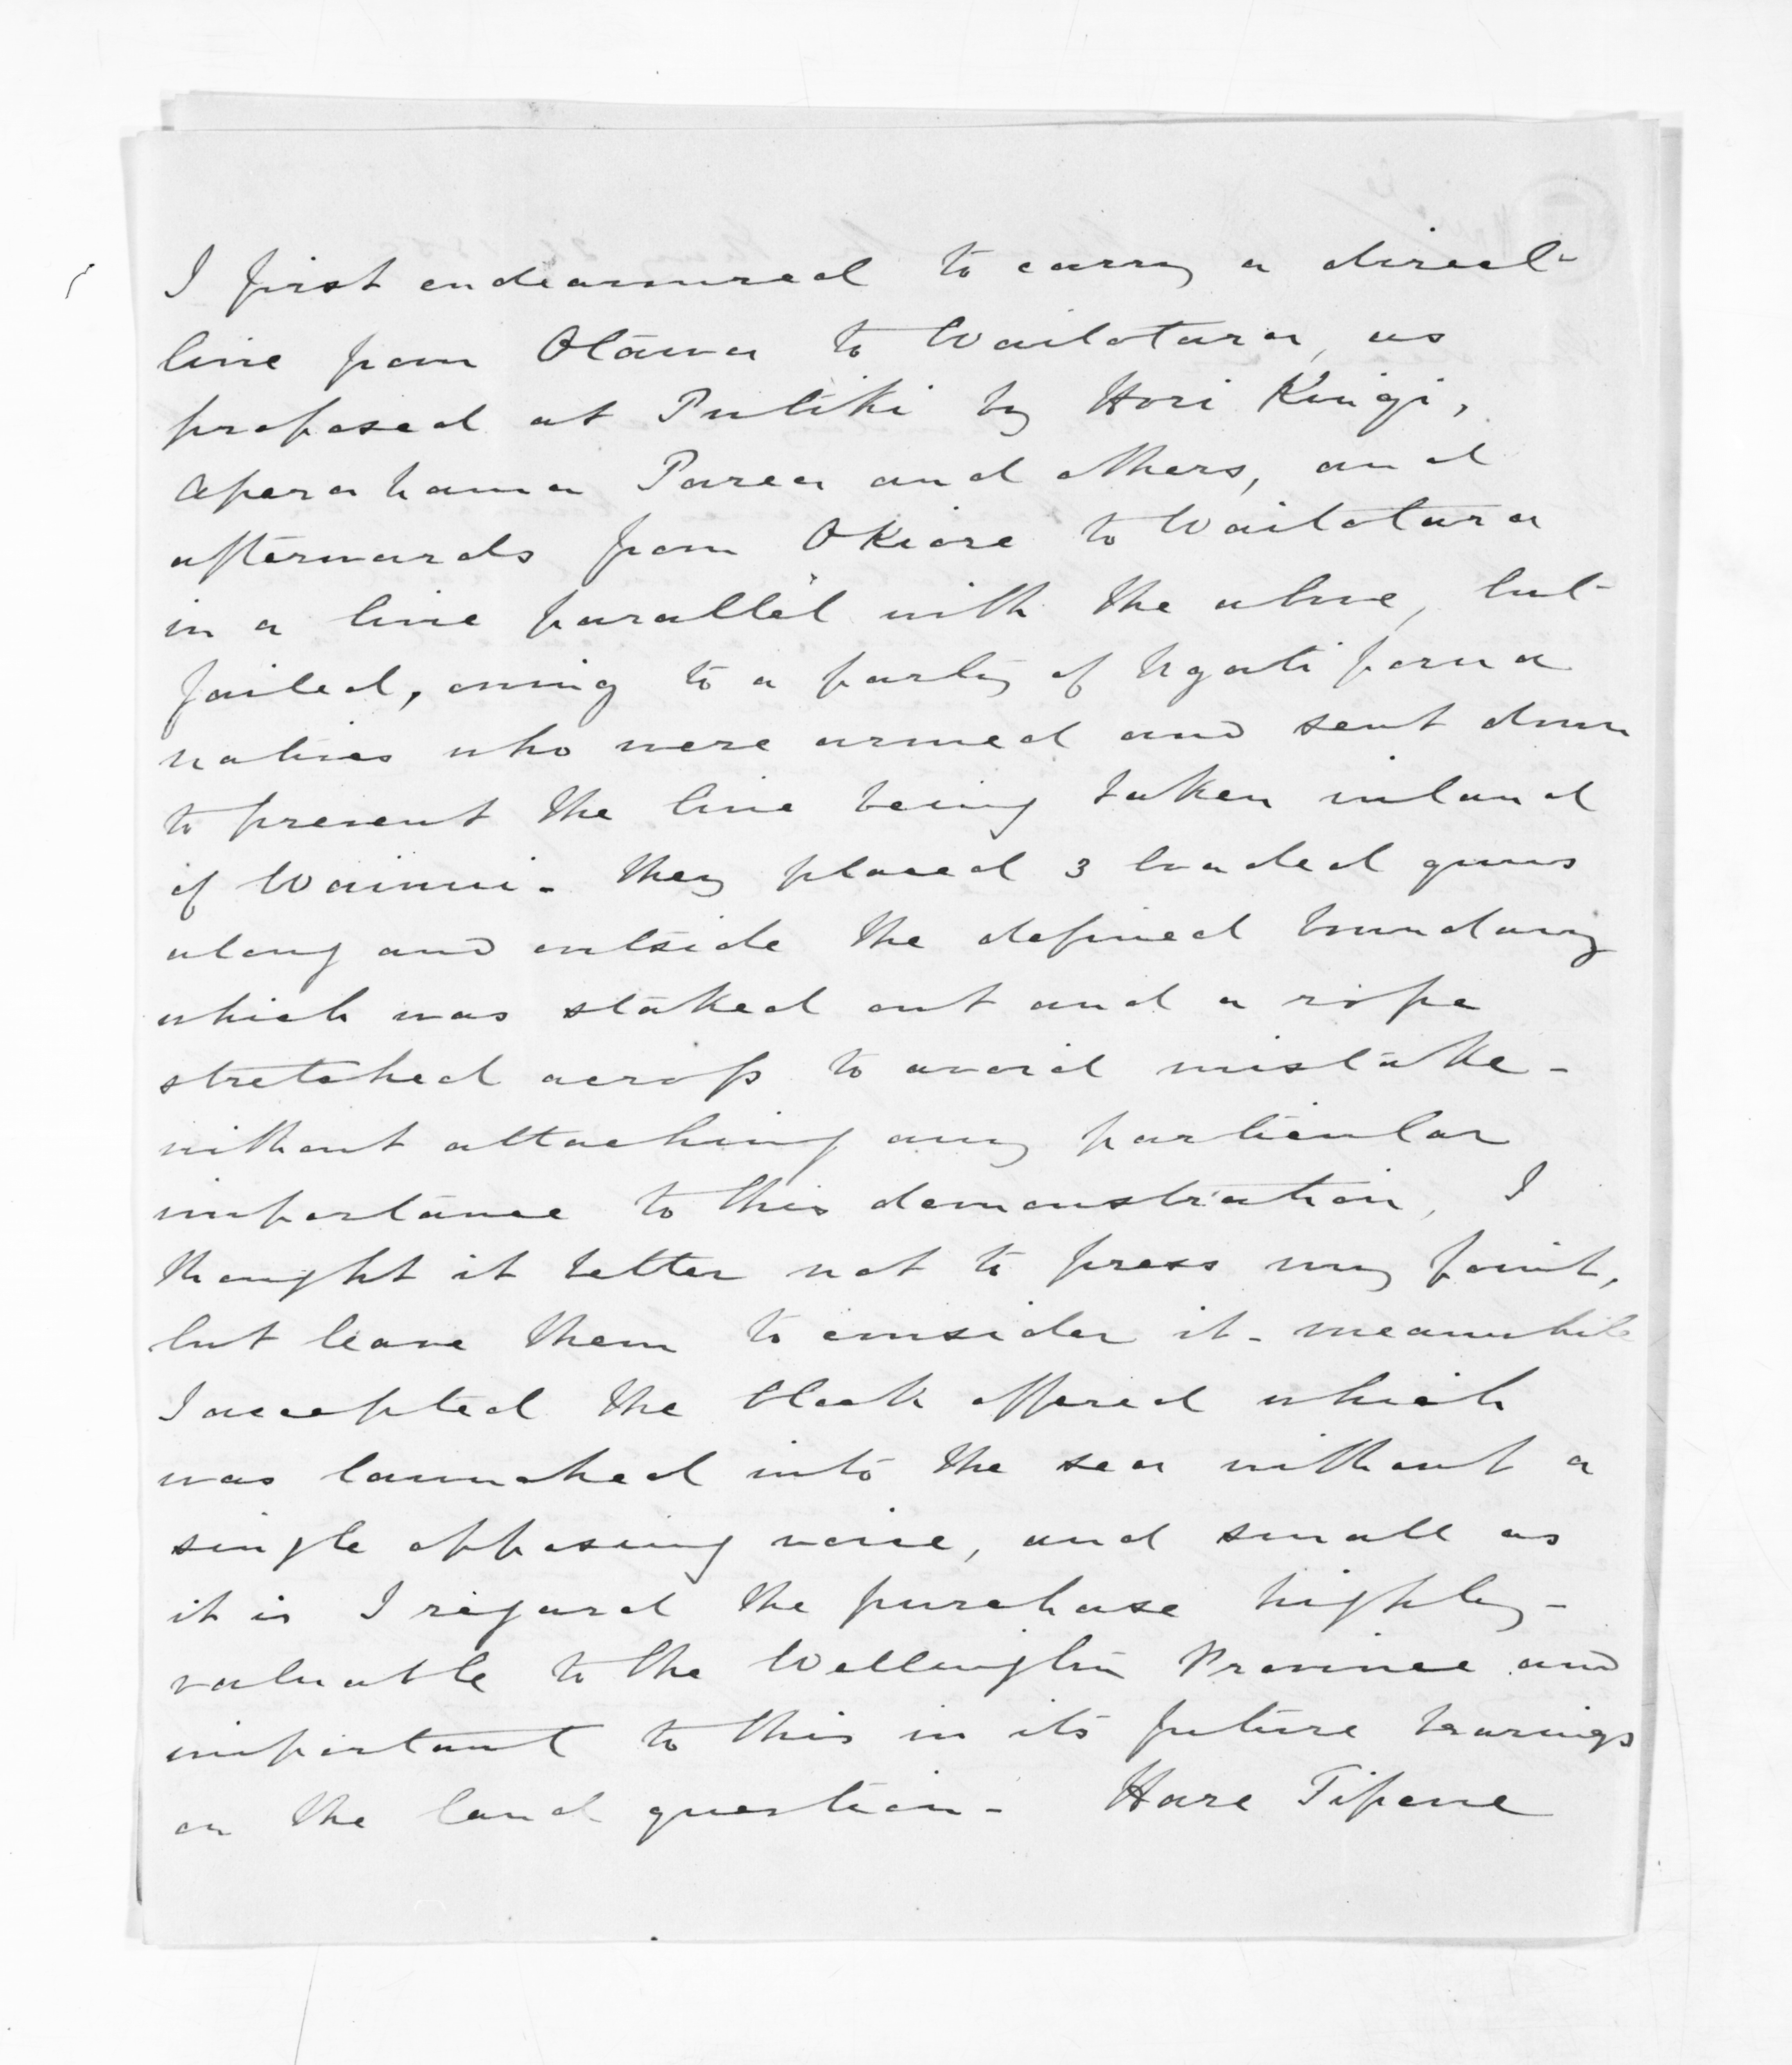 I first endeavoured to carry a direct
line from Otaua to Waitotara, as
proposed at Putiki by Hori Kingi,
Aperahama Parea and others, and
afterwards from Okiore to Waitotara
in a line parallel with the above, but
failed, owing to a party of Ngatiporua
natives who were armed and sent down
to prevent the line being taken inland
of Wainui - they placed 3 loaded guns
along and outside the defined boundary
which was staked out and a rope
stretched across to avoid mistake -
without attaching any particular
importance to this demonstration, I
thought it better not to press my point,
but leave them to consider it - meanwhile
I accepted the block offered which
was launched into the sea without a
single opposing voice, and small as
it is I regard the purchase highly -
valuable to the Wellington Province and
important to this in its future bearings
on the land question - Hare Tipene